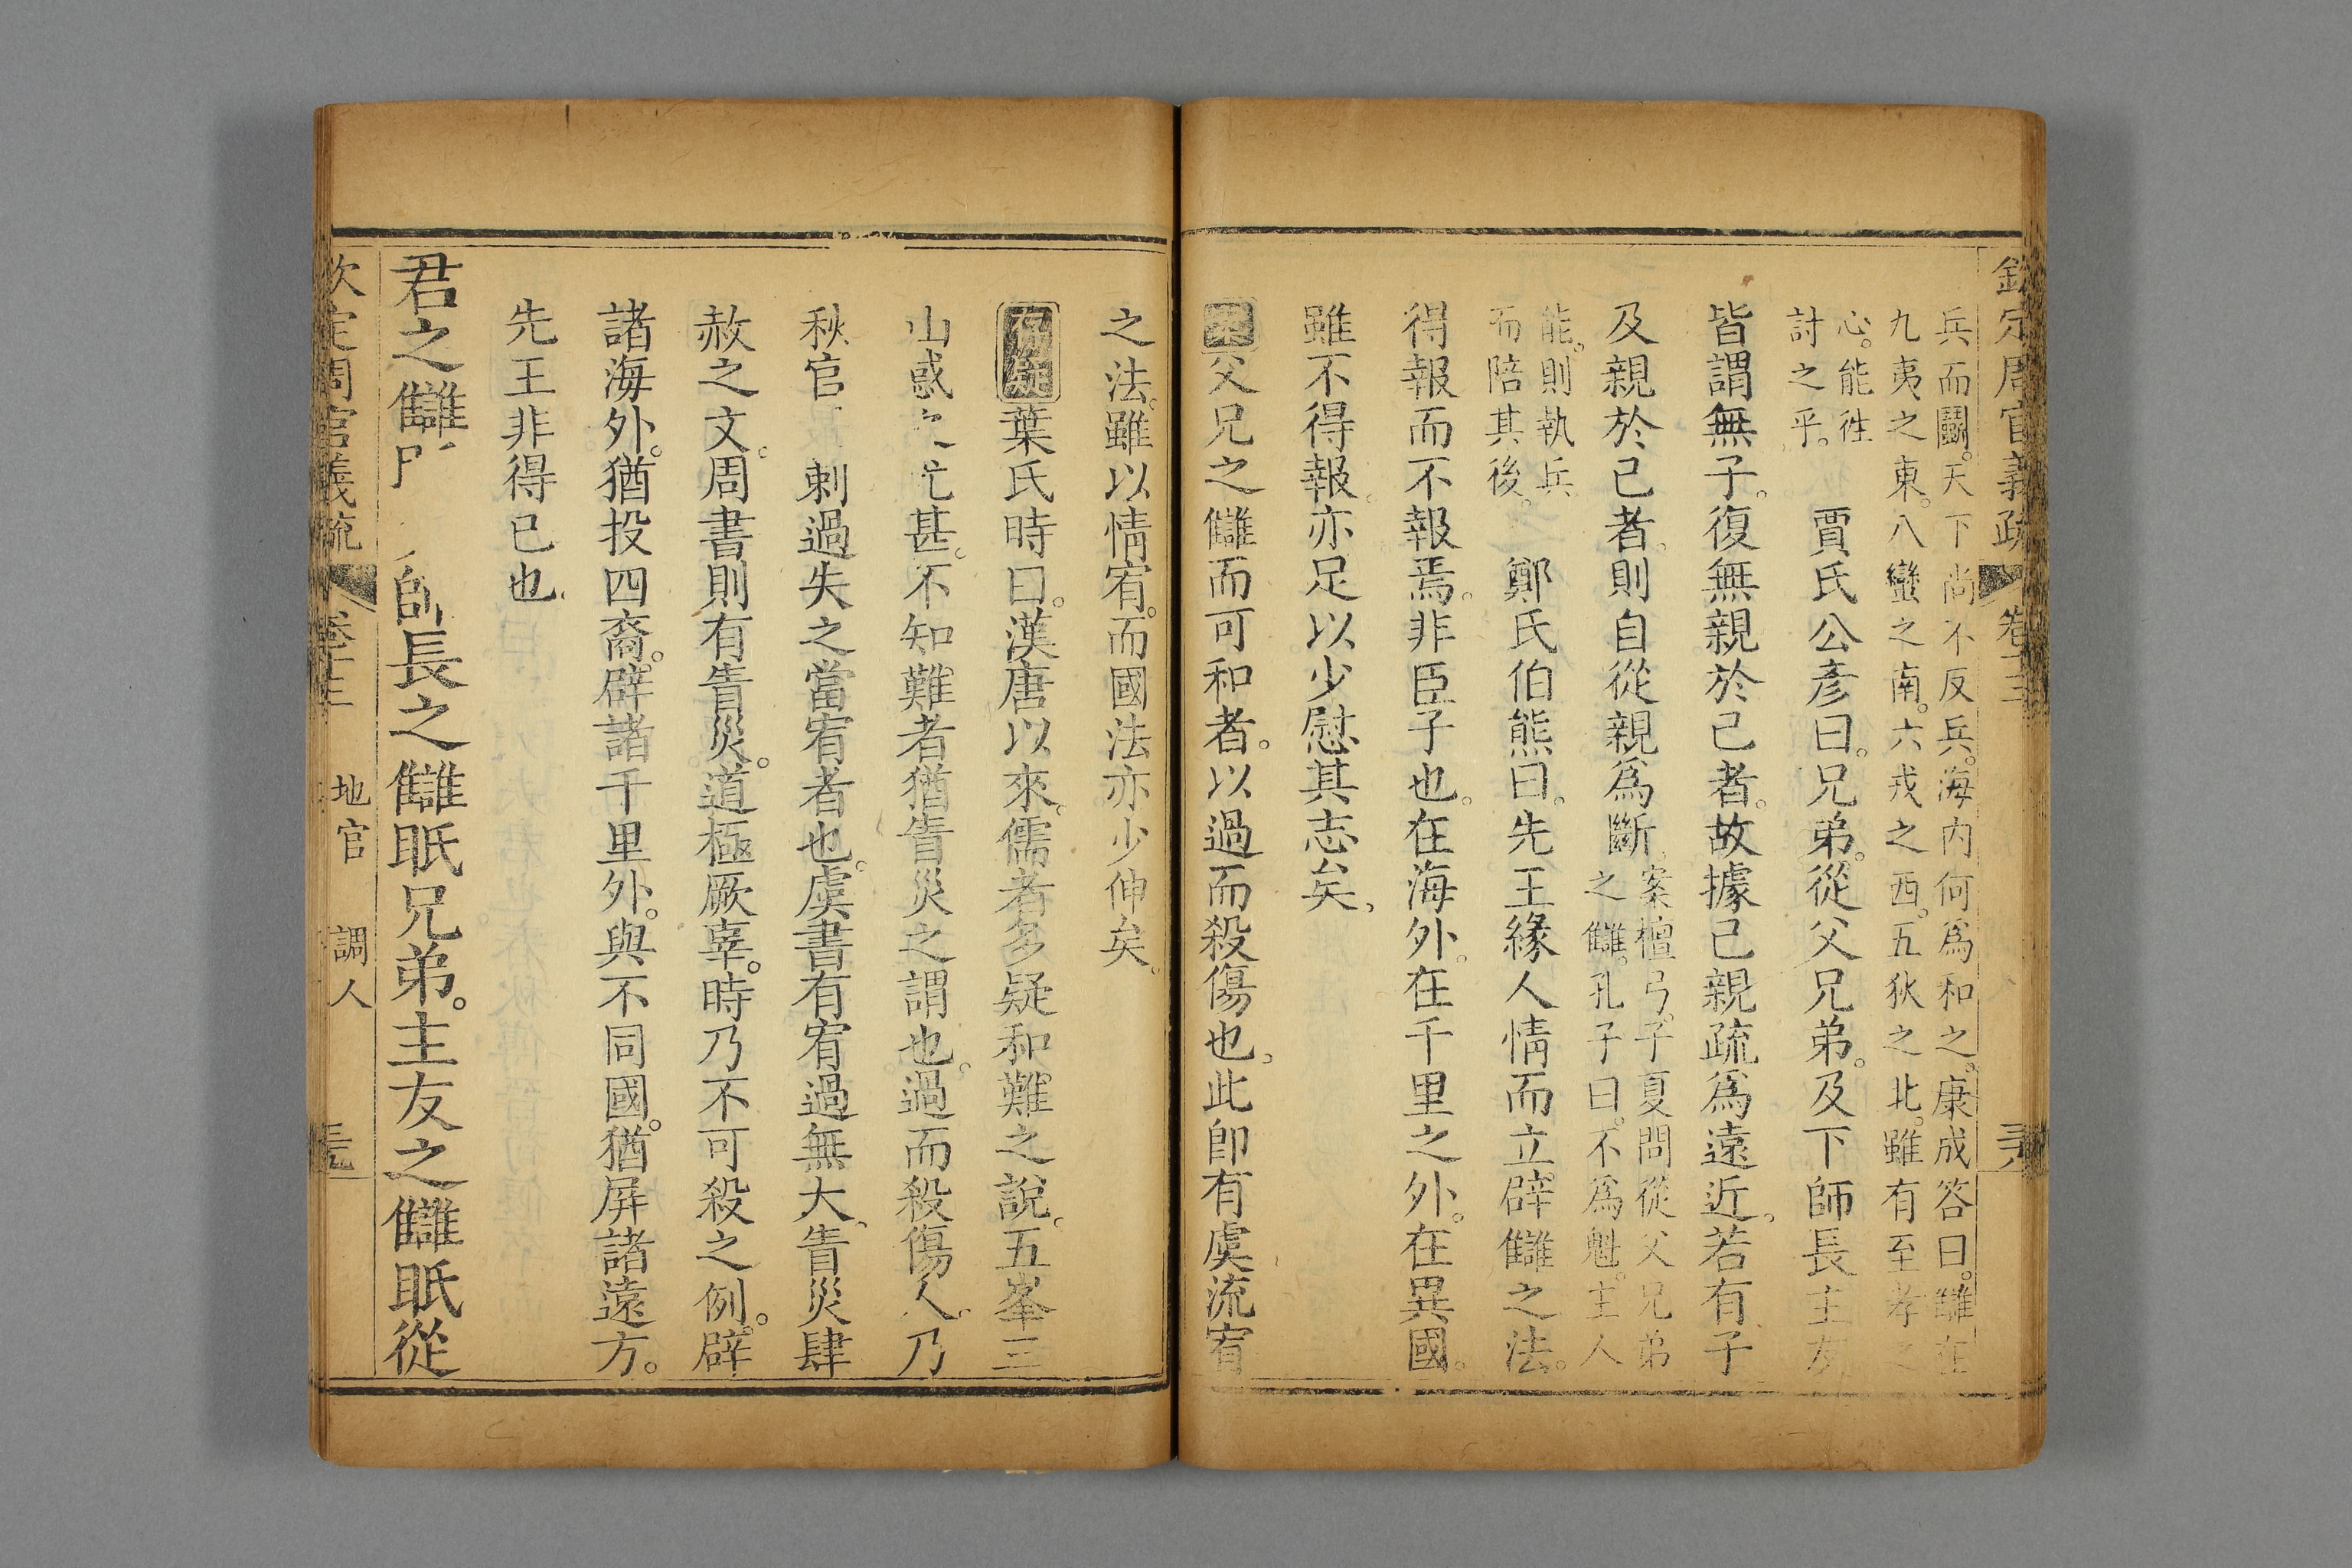 欽定周官義疏 卷十三
兵而鬭。天下尚不反兵。海內何爲和之。康成答曰。讎在
九夷之東。八蠻之南。六戎之西。五狄之北。雖有至孝之
心。能往
討之乎。
賈氏公彥曰。兄弟。從父兄弟。及下師長主友
皆謂無子。復無親於己者。故據己親疏爲遠近。若有子
及親於己者。則自從親爲斷。
案檀弓。子夏問從父兄弟
之讎。孔子曰。不爲魁。主人
能。則執兵
而陪其後。
鄭氏伯熊曰。先王緣人情而立辟讎之法。
得報而不報焉。非臣子也。在海外。在千里之外。在異國。
雖不得報。亦足以少慰其志矣。
父兄之讎而可和者。以過而殺傷也。此卽有虞流宥
之法。雖以情宥。而國法亦少伸矣。
存疑葉氏時曰。漢唐以來。儒者多疑和難之說。五峯三
山惑之尤甚。不知難者猶眚災之謂也。過而殺傷人。乃
秋官 刺過失之當宥者也。虞書有宥過無大。眚災肆
赦之文。周書則有眚災。道極厥辜。時乃不可殺之例。辟
諸海外。猶投四裔。辟諸千里外。與不同國。猶屏諸遠方。
先王非得已也。
君之讎 師長之讎眂兄弟。主友之讎眂從
欽定周官義疏 卷十三 地官 調人